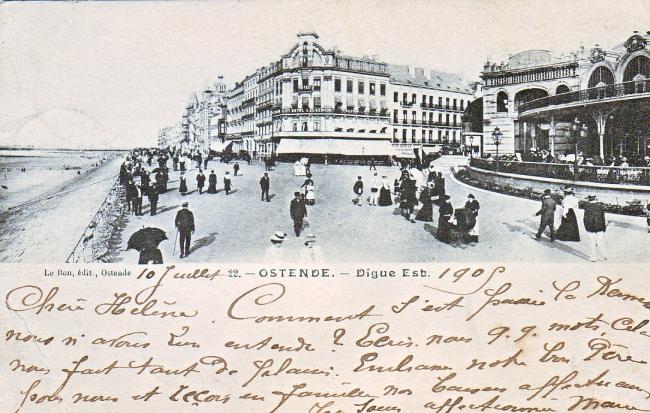 Le Bon, édit., Ostende 10 Juillet 22. - OSTENDE. - Digue Est. 1905
Chère Hélène. Comment s'est passée la
nous n'avons rien entendu? Ecris nous q.q. mots. Cela
nous fait tant de plaisir. Embrasse notre bon Père
pour nous et reçois en famille nos baisers affectueux
Ta sœur affectionnée